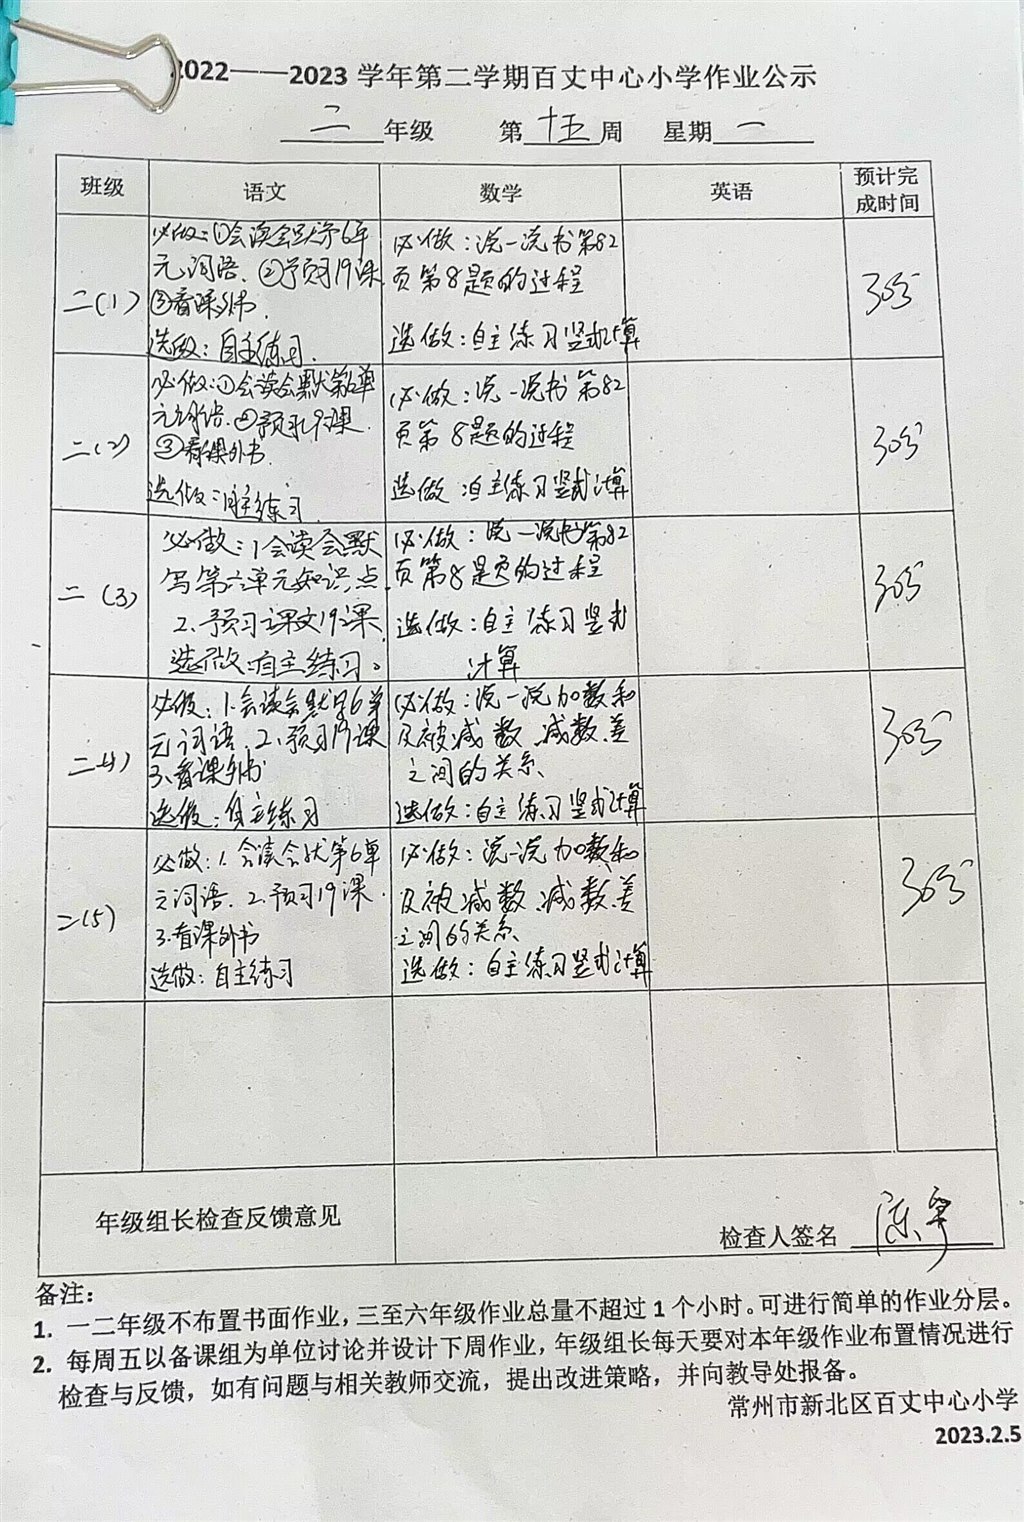 2022——2023 学年第二学期百丈中心小学作业公示
二 年级 第 十五 周 星期 一
班级 语文 数学 英语 预计完
成时间
二(1)
必做:①会读会默第6单
元词语.②预习19课
③看课外书.
选做:自主练习.
必做:说一说书第82
页第8题的过程
选做:自主练习竖式计算
30分
二(2)
必做:①会读会默第6单
元词语.②预习19课.
③看课外书.
选做:自主练习.
必做:说一说书第82
页第8题的过程
选做:自主练习竖式计算
30分
二(3)
必做:1,会读会默
写第六单元知识点.
2.预习课文19课
选做:自主练习。
必做:说一说书第82
页第8题的过程
选做:自主练习竖式
计算
30分
二(4)
必做:1.会读会默写6单
元词语.2.预习19课
3.看课外书
选做:自主练习
必做:说一说加数和
及被减数、减数、差
之间的关系、
选做:自主练习竖式计算
30分
二(5)
必做:1.会读会默第6单
元词语.2.预习19课.
3.看课外书
选做:自主练习
必做:说一说加数和
及被减数、减数差
之间的关系、
选做:自主练习竖式计算
30分
年级组长检查反馈意见
检查人签名
备注:
1. 一二年级不布置书面作业,三至六年级作业总量不超过 1 个小时。可进行简单的作业分层。
2. 每周五以备课组为单位讨论并设计下周作业,年级组长每天要对本年级作业布置情况进行
检查与反馈,如有问题与相关教师交流,提出改进策略,并向教导处报备。
常州市新北区百丈中心小学
2023.2.5